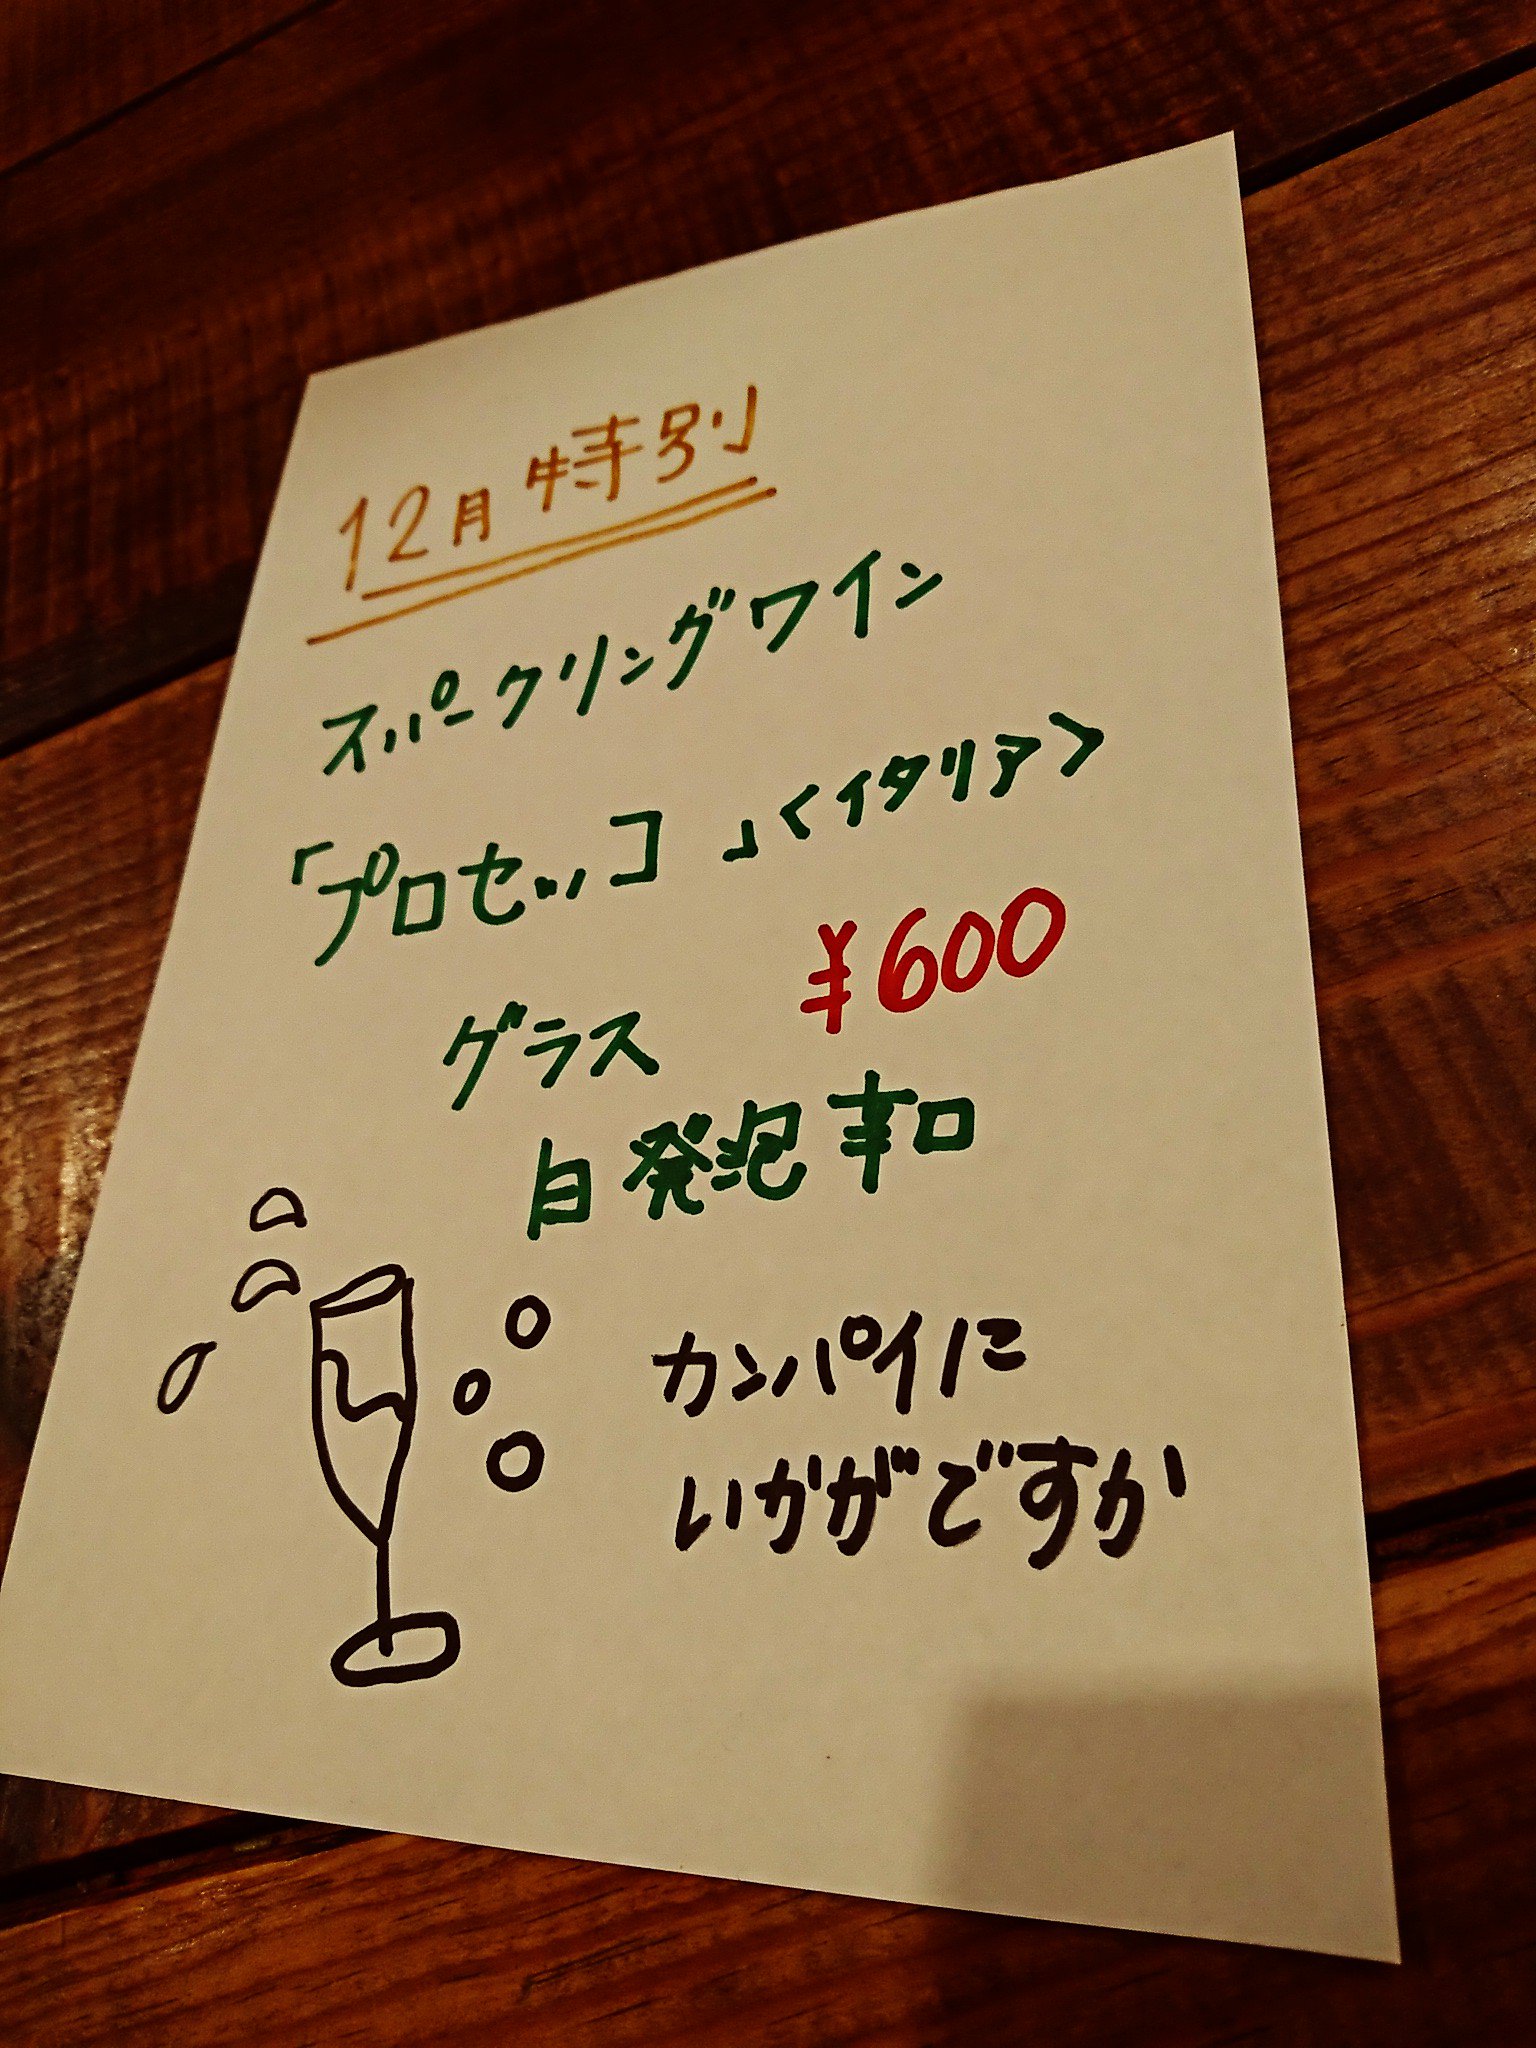 12月特別
スパークリングワイン
「プロセッコ」<イタリア>
グラス ¥600
白発泡辛口
カンパイに
いかがですか